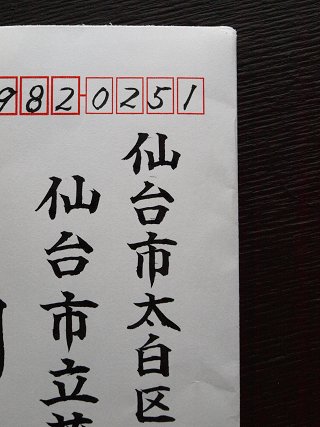 982-0251
仙台市太白区
仙台市立